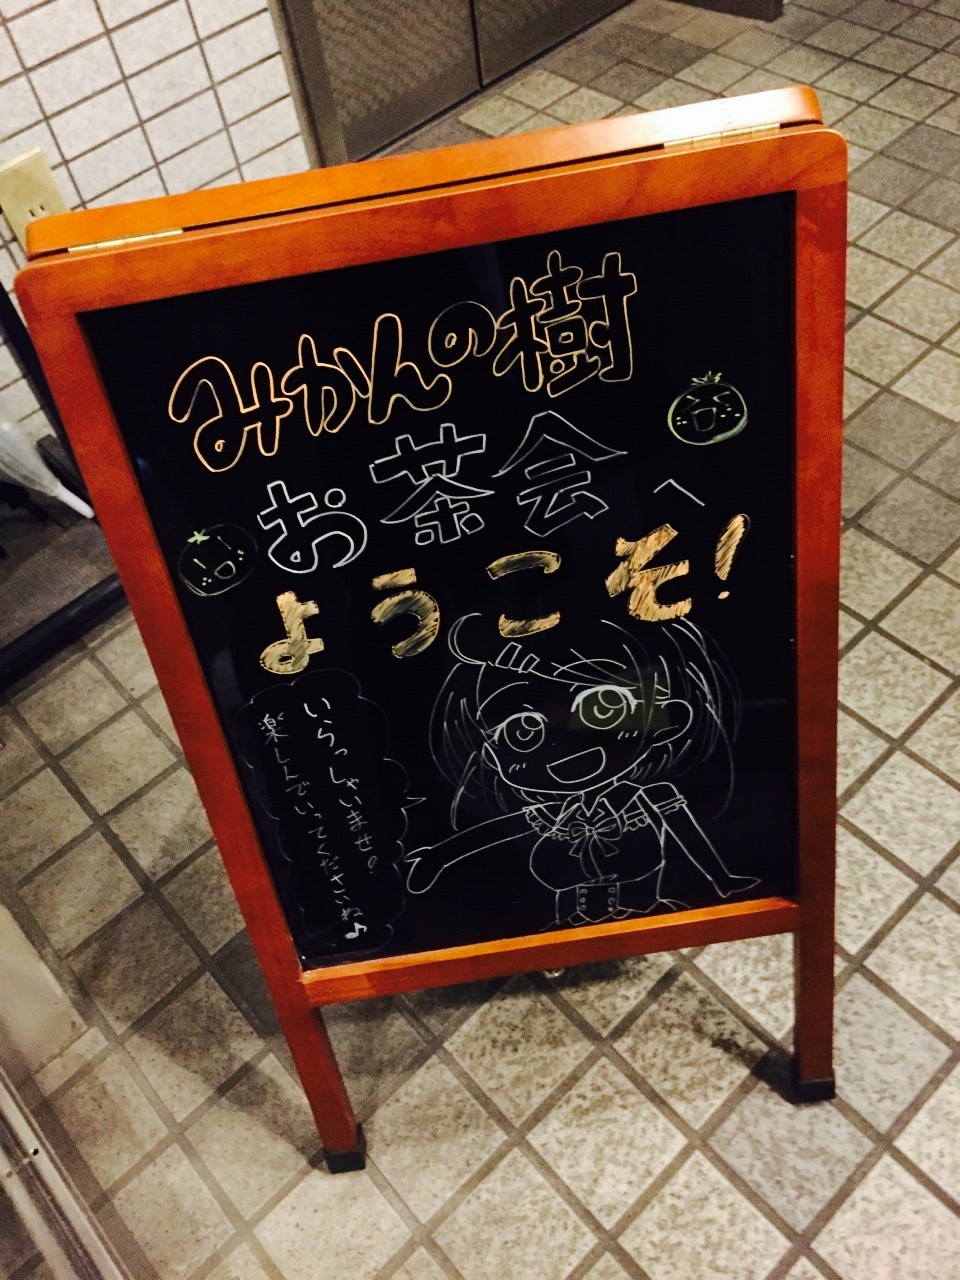 みかんの樹
お茶会へ
ようこそ!
いらっしゃいませ!
楽しんでいってくださいね♪